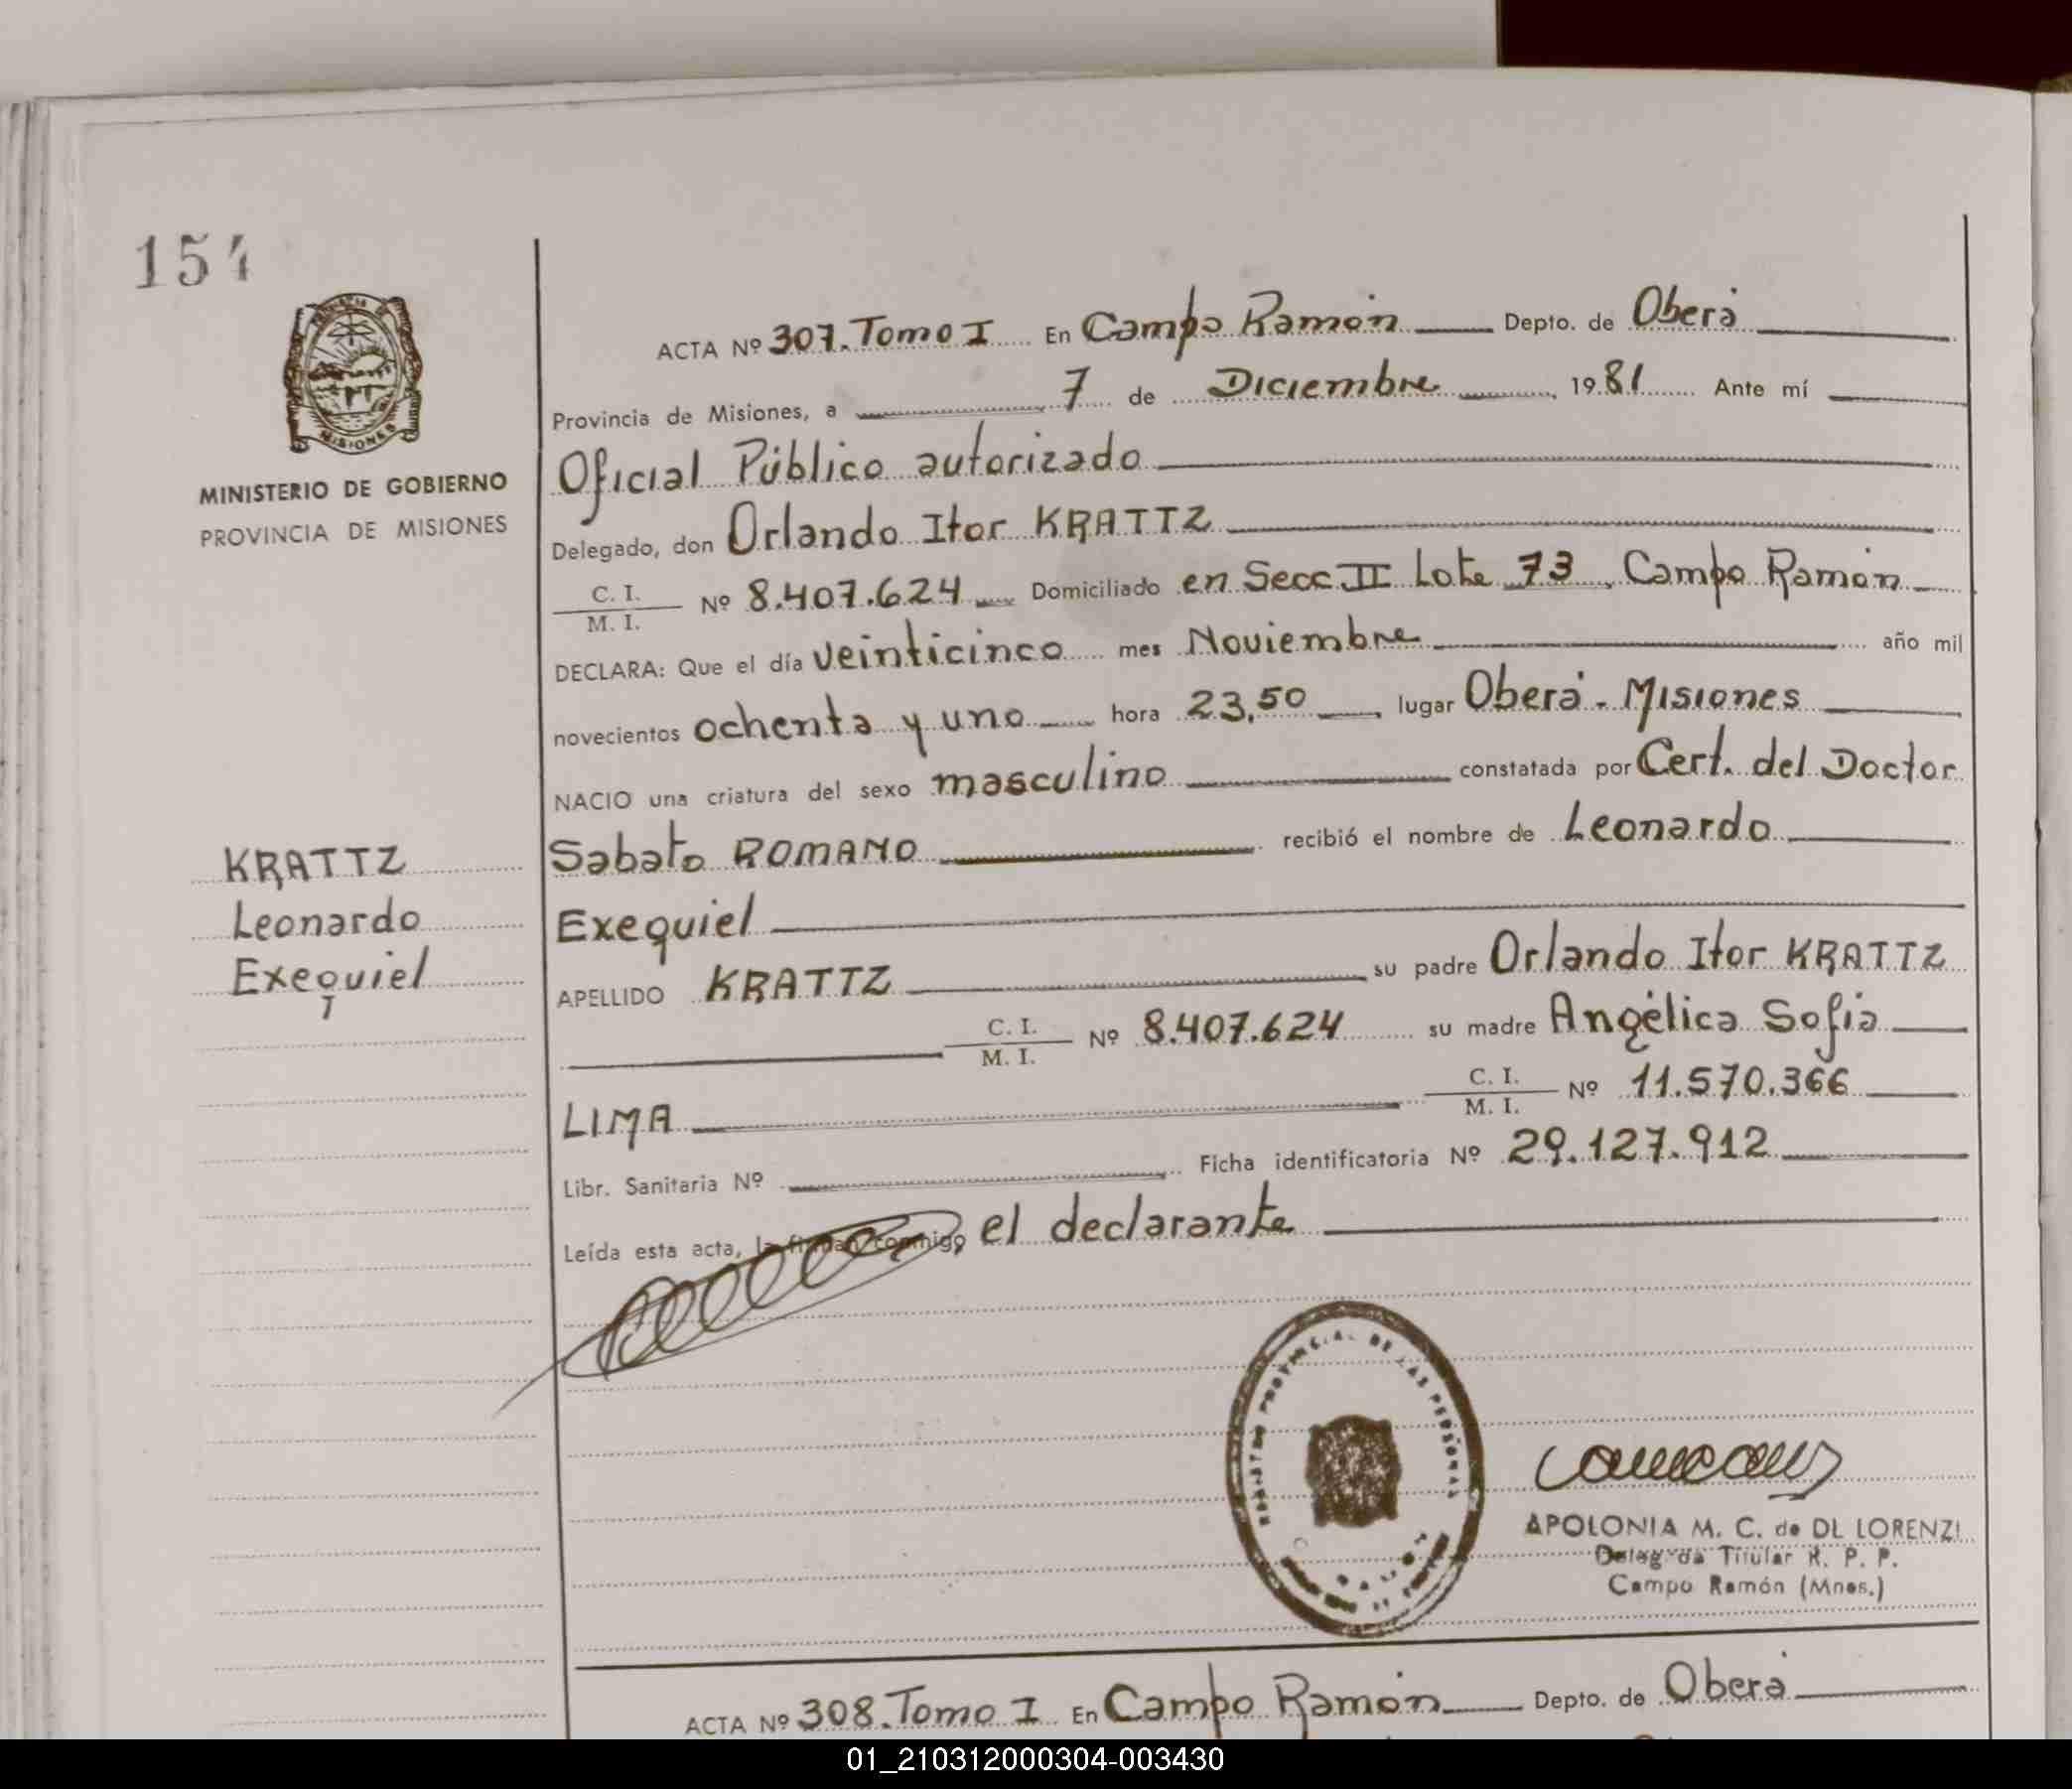 154
MISIONES
MINISTERIO DE GOBIERNO
PROVINCIA DE MISIONES
KRATTZ
Leonardo
Exequiel
ACTA Nº 307. Tomo I En Campo Ramón Depto. de Oberá
Provincia de Misiones, a 7 de Diciembre 1981 Ante mí
Oficial Público autorizado
Delegado, don Orlando Itor KRATTZ
C. I.
M. I. Nº 8.407.624 Domiciliado en Secc II Lote 73, Campo Ramón
DECLARA: Que el día veinticinco mes Noviembre año mil
novecientos ochenta y uno hora 23,50 lugar Oberá - Misiones
NACIO una criatura del sexo masculino constatada por Cert. del Doctor
Sabato ROMANO recibió el nombre de Leonardo
Exequiel
APELLIDO KRATTZ su padre Orlando Itor KRATTZ
C. I.
M. I. Nº 8.407.624 su madre Angélica Sofía
LIMA C. I.
M. I. Nº 11.570.366
Libr. Sanitaria Nº Ficha identificatoria Nº 29.127.912
Leída esta acta, la firman conmigo el declarante
PROVINCIAL DE LAS PERSONAS
APOLONIA M. C. de DL LORENZI
Titular R. P. P.
Campo Ramón (Mnes.)
ACTA Nº 308. Tomo I En Campo Ramón Depto. de Oberá
01_210312000304-003430